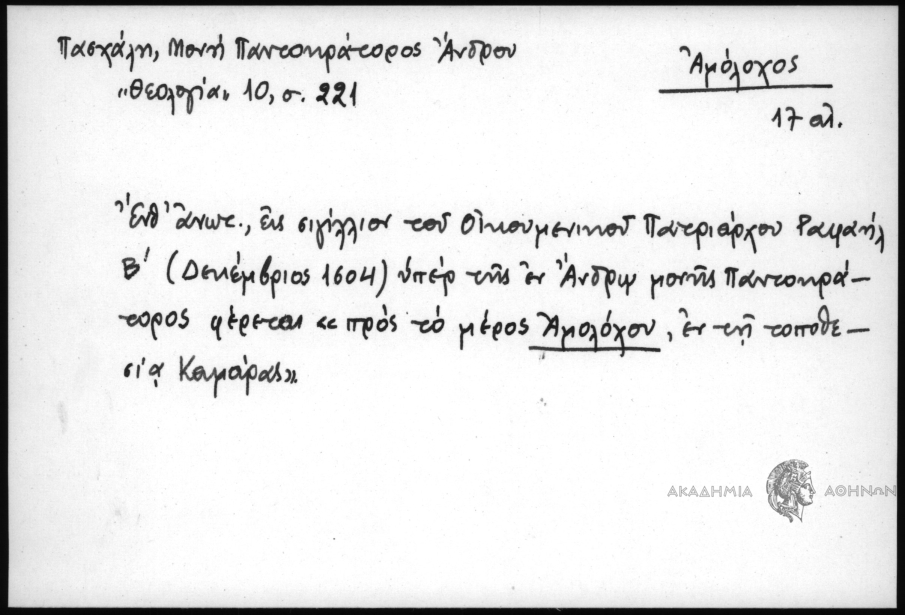 Πασχάλη, Μονή Παντοκράτορος Ἄνδρου
"Θεολογία" 10, σ. 221
Ἀμόλοχος
17 αἰ.
Ἐνθ' ἄνωτ., εἰς σιγίλλιον τοῦ Οἰκουμενικοῦ Πατριάρχου Ραφαήλ
Β' (Δεκέμβριος 1604) ὑπέρ τῆς ἐν Ἄνδρῳ μονῆς Παντοκρά-
τορος φέρεται «πρός τό μέρος Ἀμολόχου, ἐν τῇ τοποθε-
σίᾳ Καμάρας».
ΑΚΑΔΗΜΙΑ ΑΘΗΝΩΝ